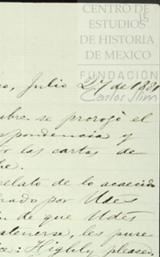 CENTRO DE
ESTUDIOS
DE HISTORIA
DE MEXICO
FUNDACIÓN
Carlos Slim
Julio 27 de 18
se prorogó el
spondencia y
las cartas de
relato de lo acaecido
por Udes
de que Udes
les puse
Highly pleased